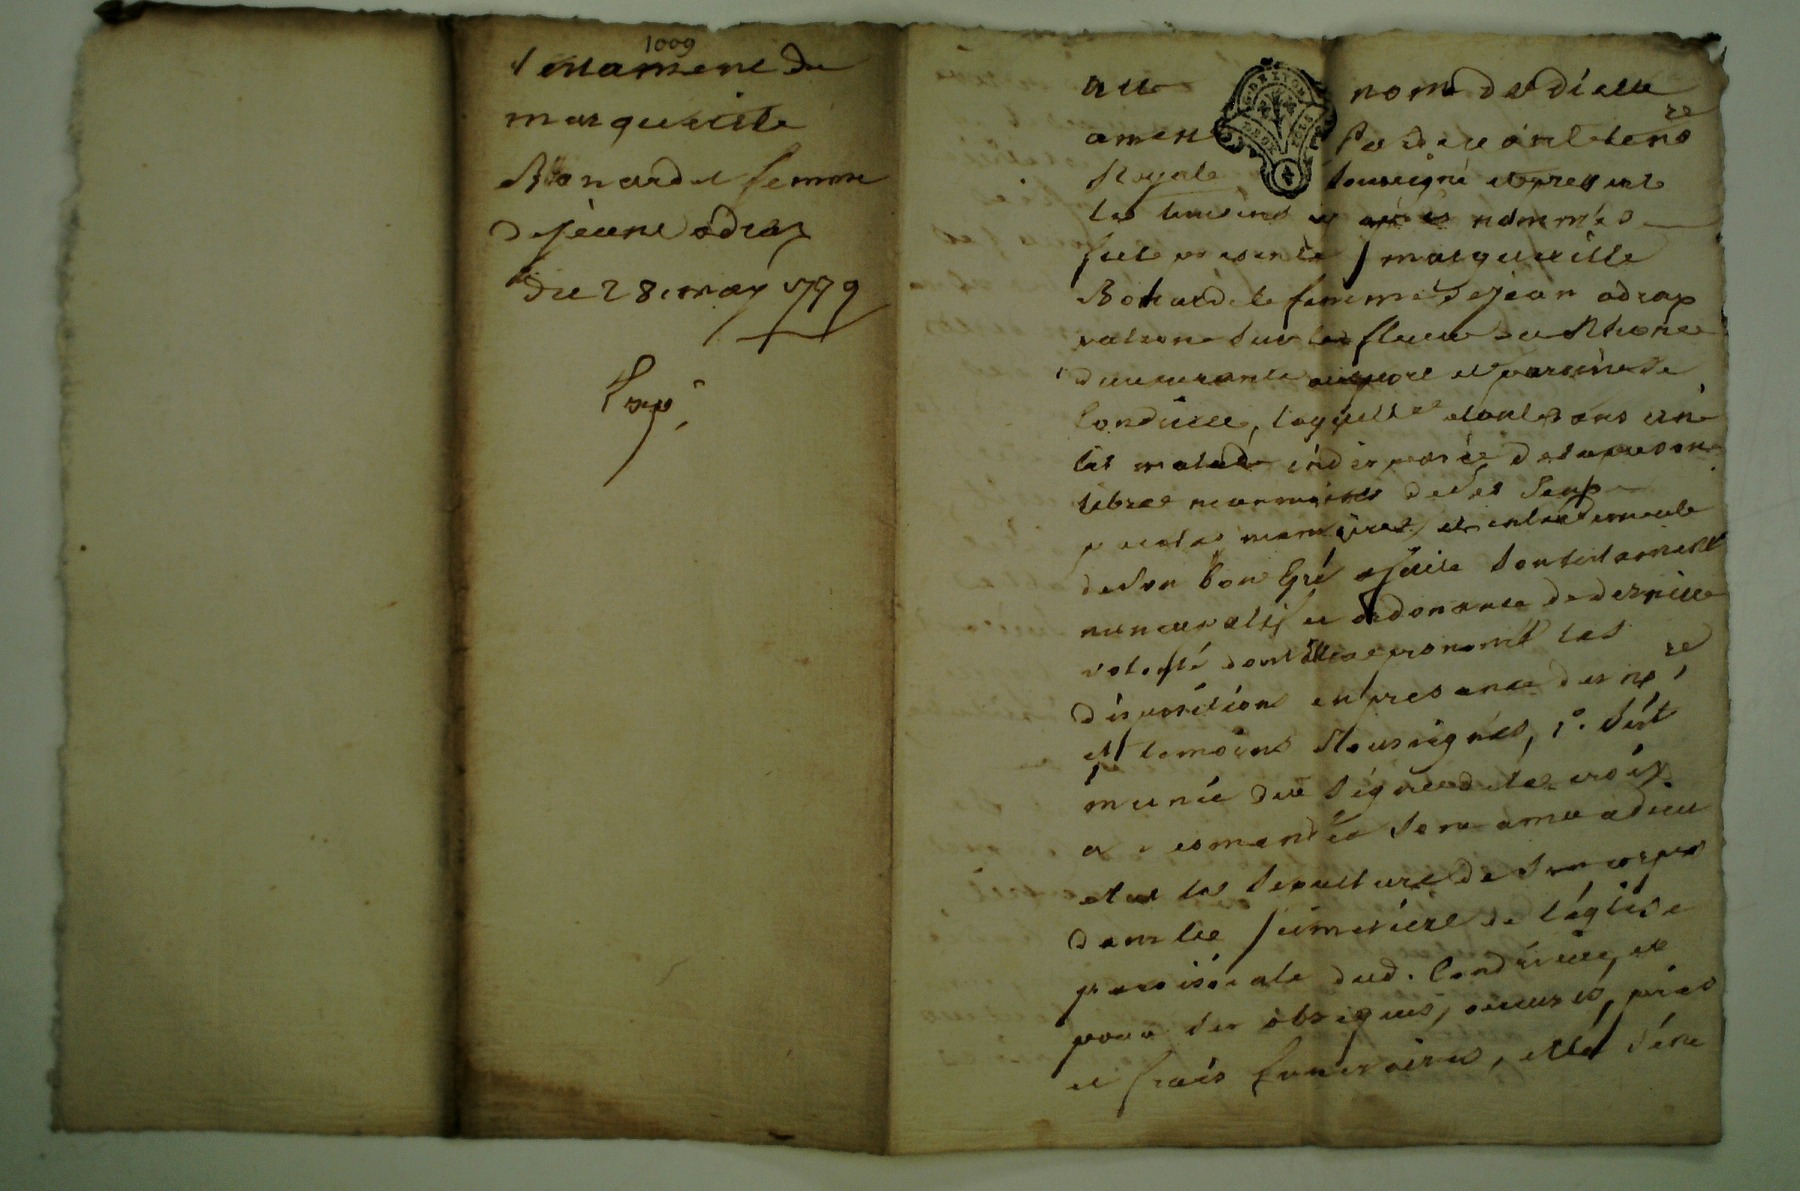 1009
testament de
marguerite
Bonardel femme
de jeane odraz
du 28 may 1779
Exp.
au nom de dieu
amen Pardevant le no re
Royale soussigné et present
les temoins cy après nommés
fut presente marguerite
Bonardel femme de jean odrap
patron sur le fleuve du Rhone
demeurante au port et paroisse de
Condrieu, laquelle etant dans un
lit malade indisposée de sa personne
libre neanmoins de ses sens
memoire et entendement
de son bon gré a faite son testament
nuncupatif et ordonance de derniere
volonté dont elle a prononcé les
disposition en presence des no re
et temoins soussignés, 1°. s'est
munie du signe de la croix
a recomandée son ame a dieu
elut la sepulture de son corps
dans le simetiere de l'église
paroissiale dud. Condrieu, et
pour ses obseques, oeuvres, pies
et frais funeraires, elle s'en